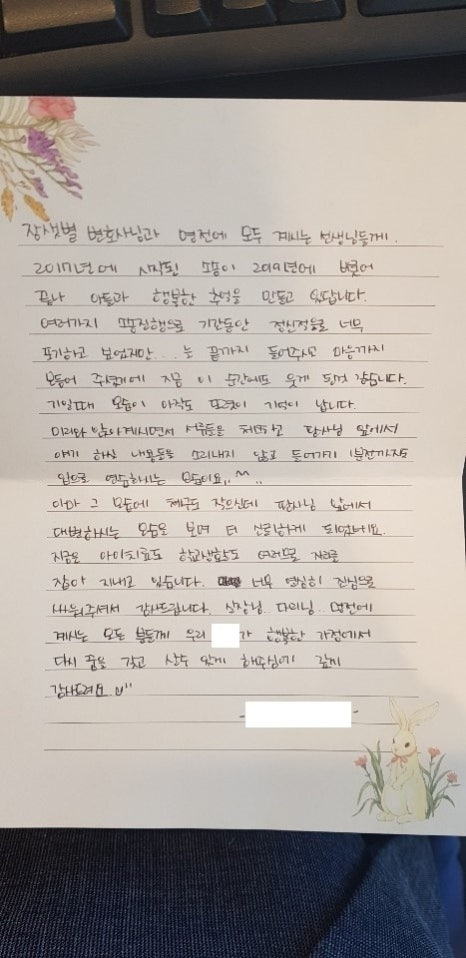 장샛별 변호사님과 명전에 모두 계시는 선생님들께.
2017년에 시작된 소송이 2019년에 비로소
끝나 아들과 행복한 추억을 만들고 있답니다.
여러가지 소송진행으로 기간동안 정신적으로 너무
포기하고 싶었지만... 는 끝까지 들어주시고 마음까지
보듬어 주셨기에 지금 이 순간에도 웃게 된것 같습니다.
기일때 모습이 아직도 또렷이 기억이 납니다.
미리와 앉아계시면서 서류들을 체크하고 판사님 앞에서
얘기 하실 내용들을 소리내지 않고 들어가기 1분전까지도
입으로 연습하시는 모습이요,,^^,,
아마 그 모습에 체구도 작으신데 판사님 앞에서
대변하시는 모습을 보며 더 신뢰하게 되었네요.
지금은 아이치료도 학교생활도 여러므로 자리를
잡아 지내고 있습니다. 너무 열심히 진심으로
싸워주셔서 감사드립니다. 실장님. 대리님. 명전에
계시는 모든 분들께 우리 가 행복한 가정에서
다시 꿈을 갖고 살수 있게 해주심에 깊이
감사드려요